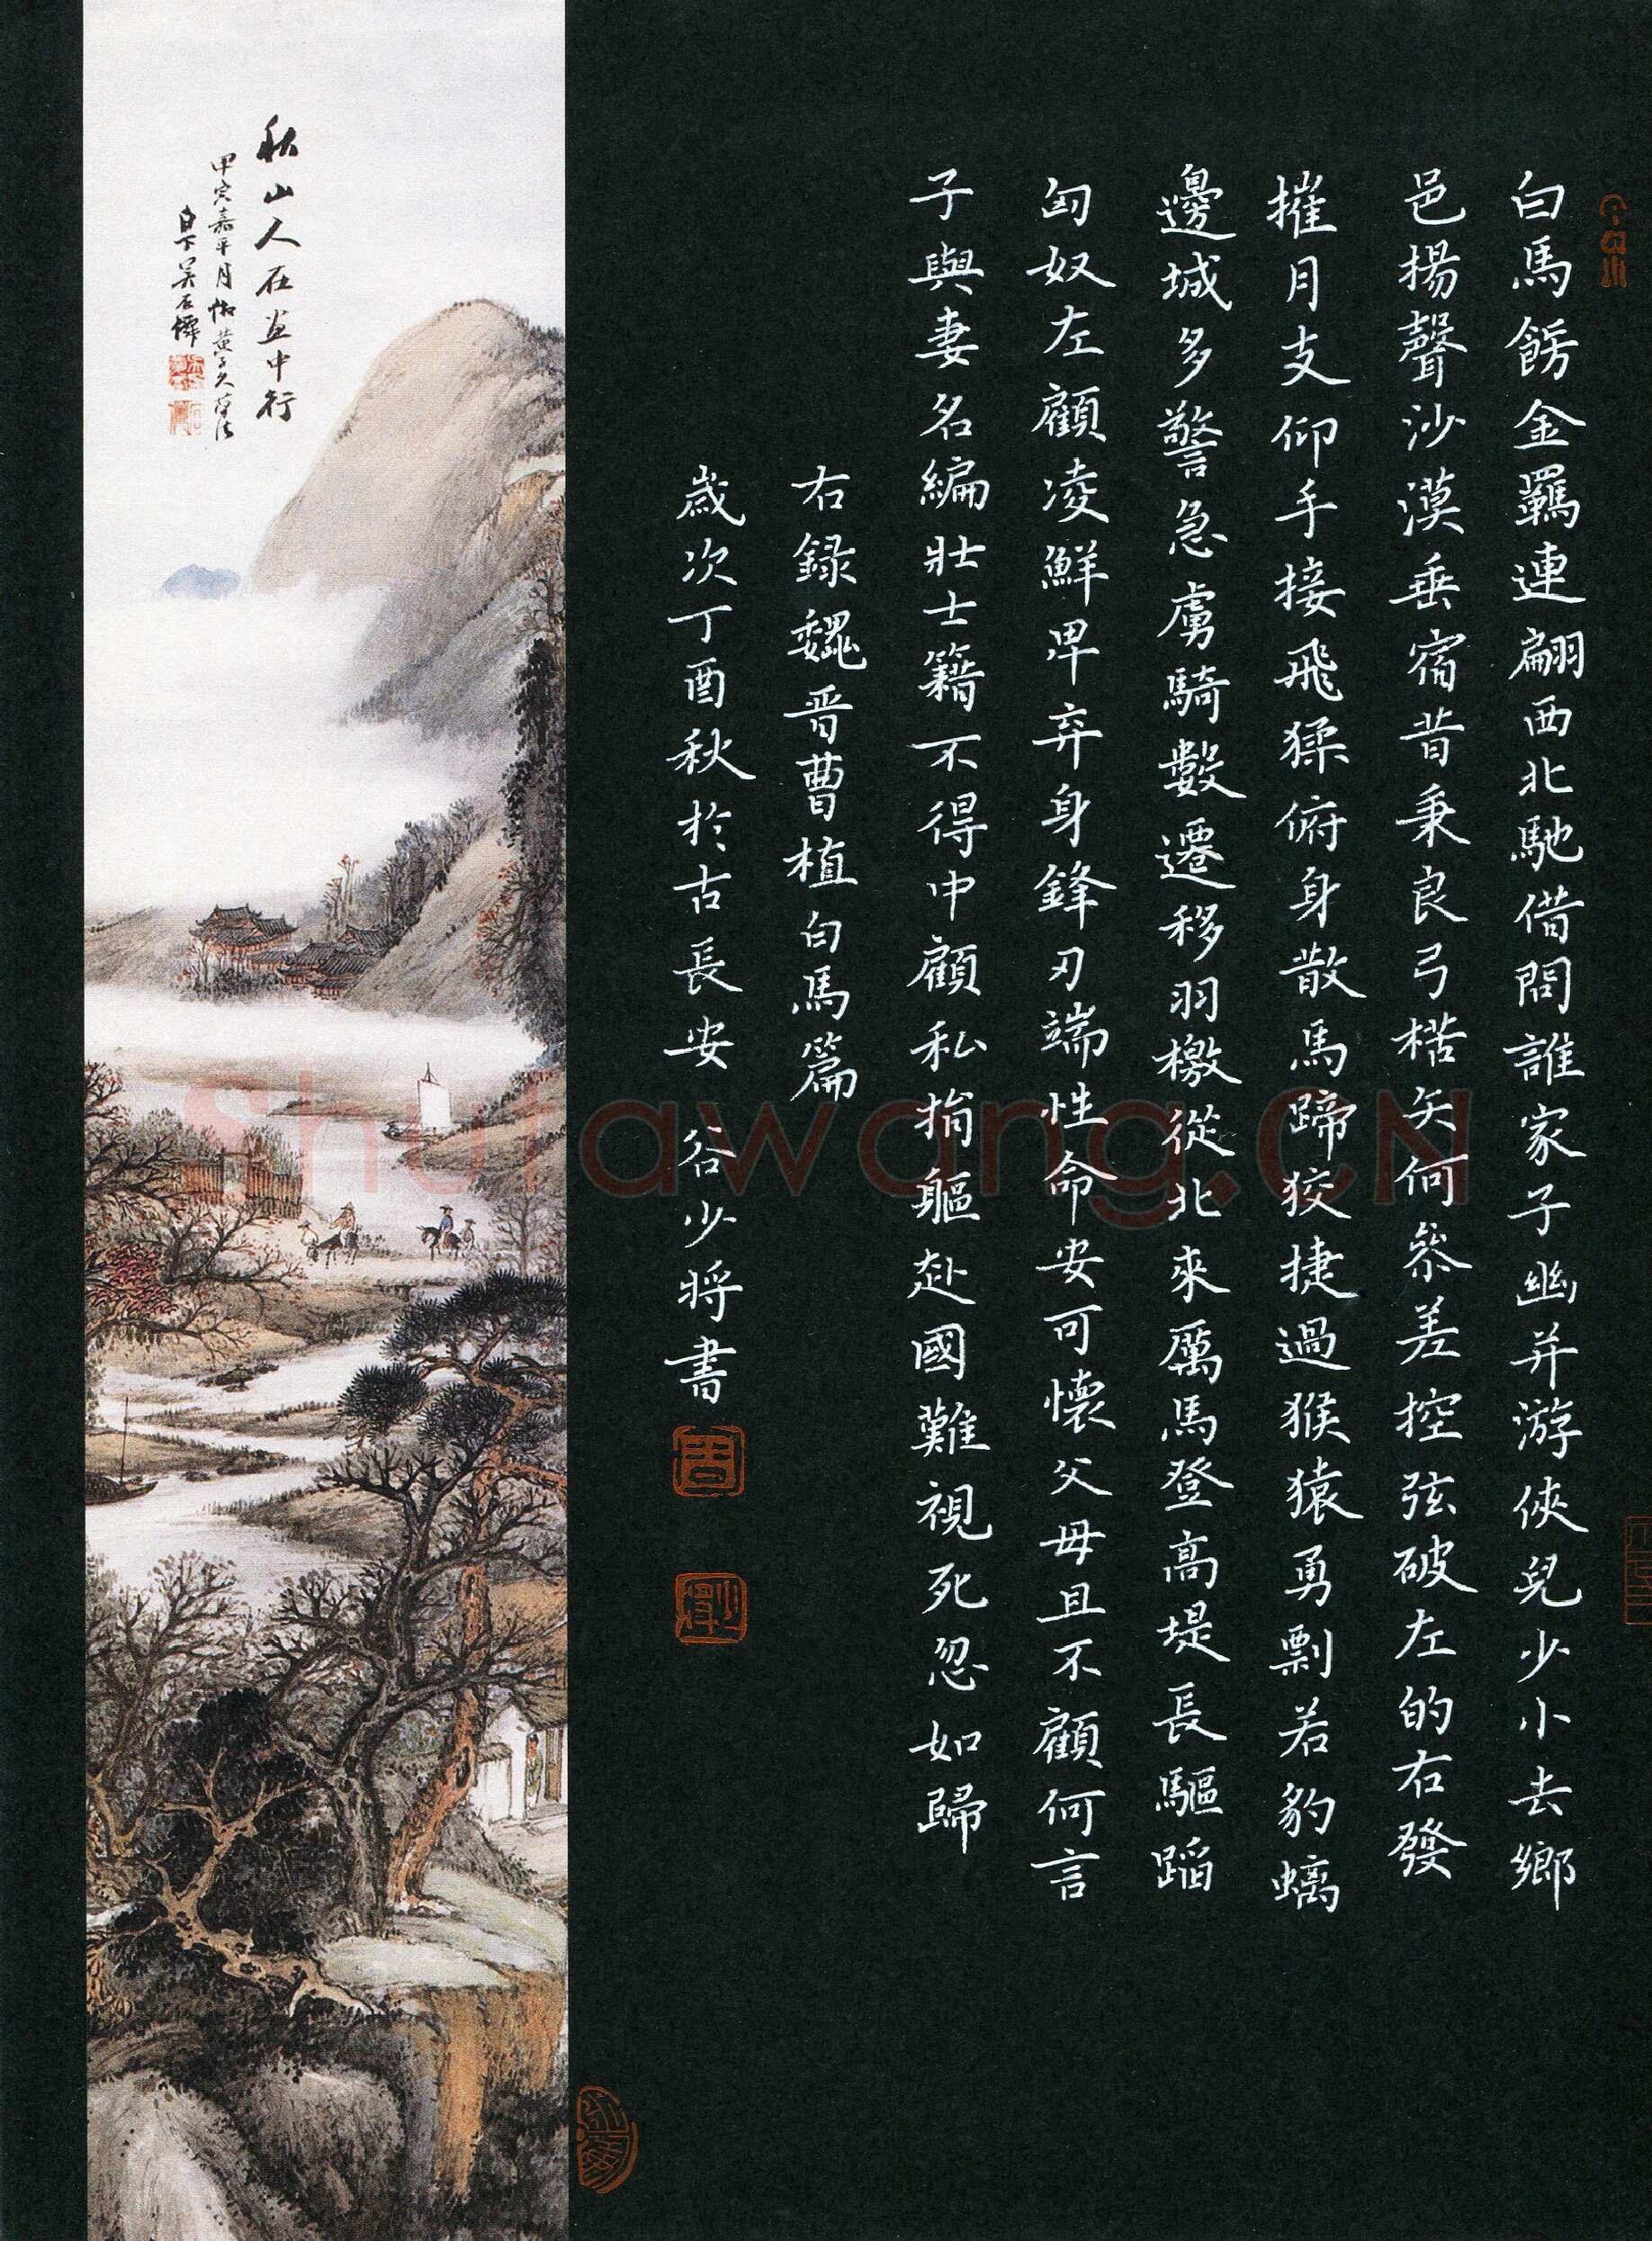 白馬餝金羈連翩西北馳借問誰家子幽并游俠兒少小去鄉
邑揚聲沙漠垂宿昔秉良弓楛矢何叅差控弦破左的右發
摧月支仰手接飛猱俯身散馬蹄狡捷過猴猿勇剽若豹螭
邊城多警急虜騎數遷移羽檄從北來厲馬登高堤長驅蹈
匈奴左顧凌鮮卑弃身鋒刃端性命安可懷父母且不顧何言
子與妻名編壯士籍不得中顧私捐軀赴國難視死忽如歸
右錄魏晋曹植白馬篇
歲次丁酉秋於古長安 谷少將書
秋山人在画中行
甲寅嘉平月 黄子久
白下吴石僊
Shufawang.CN